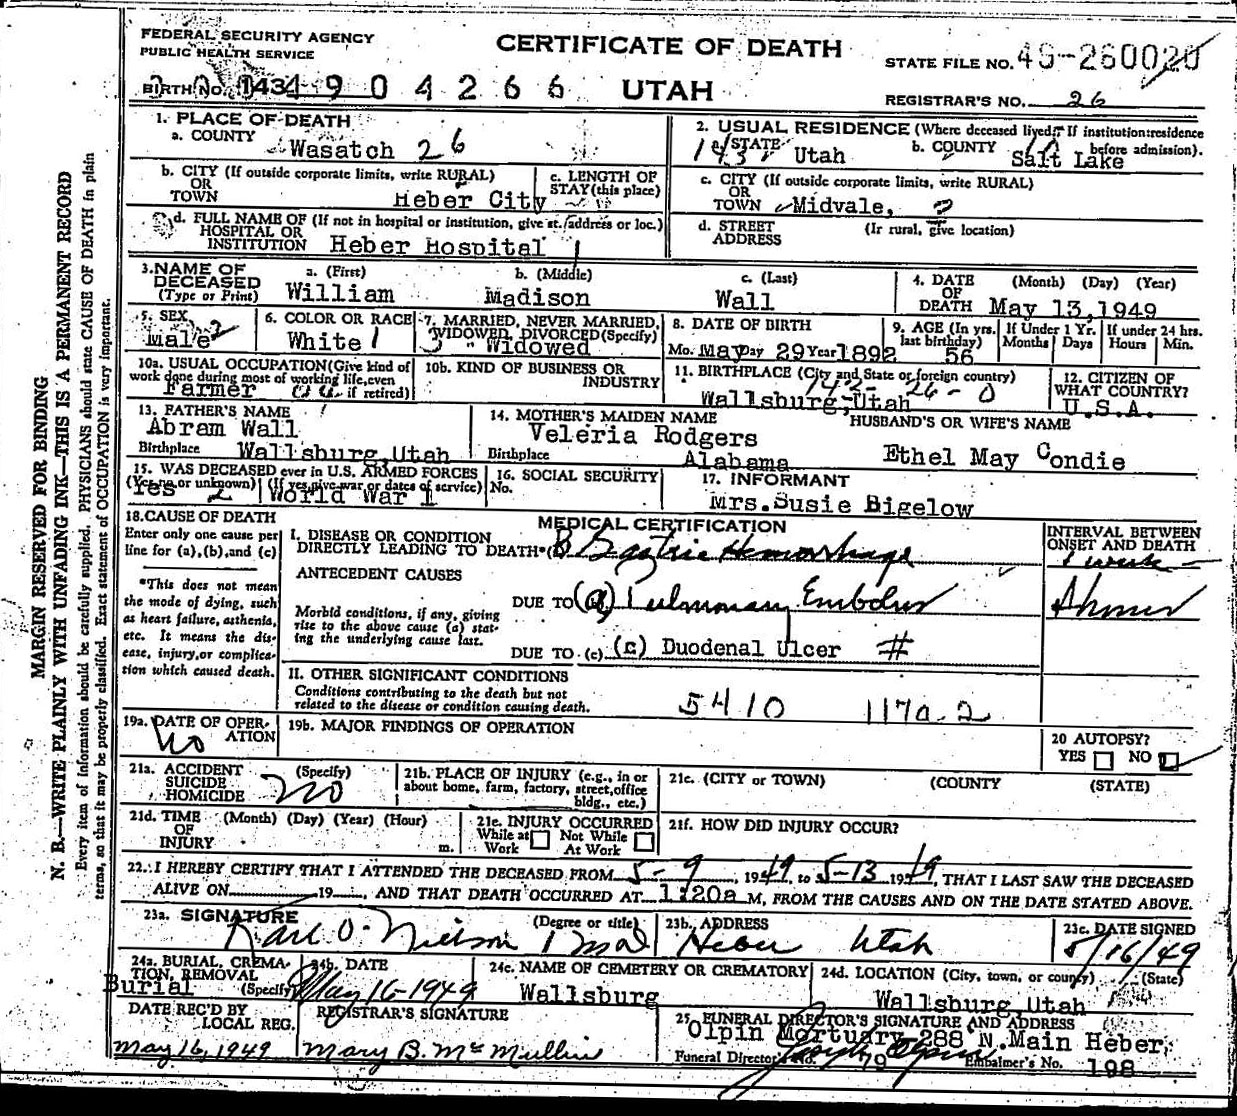 FEDERAL SECURITY AGENCY
PUBLIC HEALTH SERVICE
CERTIFICATE OF DEATH
STATE FILE NO. 49-260020
BIRTH NO. 143 4904266 UTAH
REGISTRAR'S NO. 26
MARGIN RESERVED FOR BINDING
N. B.—WRITE PLAINLY WITH UNFADING INK—THIS IS A PERMANENT RECORD
Every item of information should be carefully supplied. PHYSICIANS should state CAUSE OF DEATH in plain
terms, so that it may be properly classified. Exact statement of OCCUPATION is very important.
1. PLACE OF DEATH
a. COUNTY Wasatch 26
2. USUAL RESIDENCE (Where deceased lived. If institution: residence before admission).
a. STATE Utah b. COUNTY Salt Lake
b. CITY (If outside corporate limits, write RURAL)
OR
TOWN Heber City
c. LENGTH OF
STAY (this place)
c. CITY (If outside corporate limits, write RURAL)
OR
TOWN Midvale,
d. FULL NAME OF (If not in hospital or institution, give st. address or loc.)
HOSPITAL OR
INSTITUTION Heber Hospital
d. STREET (If rural, give location)
ADDRESS
3. NAME OF
DECEASED
(Type or Print)
a. (First) William
b. (Middle) Madison
c. (Last) Wall
4. DATE (Month) (Day) (Year)
OF
DEATH May 13, 1949
5. SEX
Male 2
6. COLOR OR RACE
White 1
7. MARRIED, NEVER MARRIED,
WIDOWED, DIVORCED (Specify)
3 Widowed
8. DATE OF BIRTH
Mo. May Day 29 Year 1892
9. AGE (In yrs. last birthday)
56
If Under 1 Yr.
Months Days
If under 24 hrs.
Hours Min.
10a. USUAL OCCUPATION (Give kind of
work done during most of working life, even
if retired)
Farmer
10b. KIND OF BUSINESS OR
INDUSTRY
11. BIRTHPLACE (City and State or foreign country)
142-26-0
Wallsburg, Utah
12. CITIZEN OF
WHAT COUNTRY?
U.S.A.
13. FATHER'S NAME
Abram Wall
Birthplace Wallsburg, Utah
14. MOTHER'S MAIDEN NAME
Veleria Rodgers
Birthplace Alabama
HUSBAND'S OR WIFE'S NAME
Ethel May Condie
15. WAS DECEASED ever in U.S. ARMED FORCES
(Yes, no or unknown) (If yes, give war or dates of service)
Yes 2 World War 1
16. SOCIAL SECURITY
No.
17. INFORMANT
Mrs. Susie Bigelow
18. CAUSE OF DEATH
Enter only one cause per
line for (a), (b), and (c)
*This does not mean
the mode of dying, such
as heart failure, asthenia,
etc. It means the dis-
ease, injury, or complica-
tion which caused death.
MEDICAL CERTIFICATION
INTERVAL BETWEEN
ONSET AND DEATH
I. DISEASE OR CONDITION
DIRECTLY LEADING TO DEATH* (B. Gastric Hemorrhage
1 week
ANTECEDENT CAUSES
Morbid conditions, if any, giving
rise to the above cause (a) stat-
ing the underlying cause last.
DUE TO (a) Pulmonary Embolus
DUE TO (c) (c) Duodenal Ulcer #
II. OTHER SIGNIFICANT CONDITIONS
Conditions contributing to the death but not
related to the disease or condition causing death.
5410 117a-2
19a. DATE OF OPER-
ATION
No
19b. MAJOR FINDINGS OF OPERATION
20 AUTOPSY?
YES NO
21a. ACCIDENT (Specify)
SUICIDE
HOMICIDE No
21b. PLACE OF INJURY (e.g., in or
about home, farm, factory, street, office
bldg., etc.)
21c. (CITY or TOWN) (COUNTY (STATE)
21d. TIME (Month) (Day) (Year) (Hour)
OF
INJURY m.
21e. INJURY OCCURRED
While at Work Not While At Work
21f. HOW DID INJURY OCCUR?
22. I HEREBY CERTIFY THAT I ATTENDED THE DECEASED FROM 5-9, 1949, to 5-13 1949, THAT I LAST SAW THE DECEASED
ALIVE ON 19 , AND THAT DEATH OCCURRED AT 1:20a M, FROM THE CAUSES AND ON THE DATE STATED ABOVE.
23a. SIGNATURE (Degree or title)
Karl O. Nielson
23b. ADDRESS
Heber Utah
23c. DATE SIGNED
5/16/49
24a. BURIAL, CREMA-
TION, REMOVAL
(Specify)
Burial
24b. DATE
May 16-1949
24c. NAME OF CEMETERY OR CREMATORY
Wallsburg
24d. LOCATION (City, town, or county) (State)
Wallsburg, Utah
DATE REC'D BY
LOCAL REG.
May 16, 1949
REGISTRAR'S SIGNATURE
Mary B. McMullin
25. FUNERAL DIRECTOR'S SIGNATURE AND ADDRESS
Olpin Mortuary 288 N. Main Heber,
Funeral Director's No. 79 Embalmer's No. 198